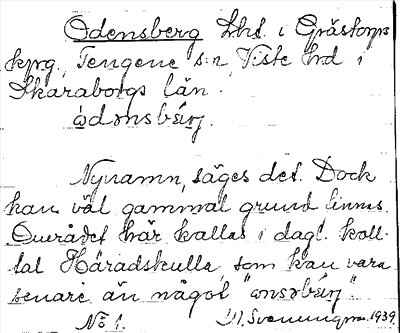 Odensberg Lht. i Grästorps
kprg, Tengene s:n, Viste hd i
Skaraborgs län.
ὼdənsbárj.
Nynamn, säges det. Dock
kan väl gammal grund finnas.
Området här kallas i dagl. koll-
tal Häradskulla, som kan vara
senare än något "ənsbärj".
No 1. 1939